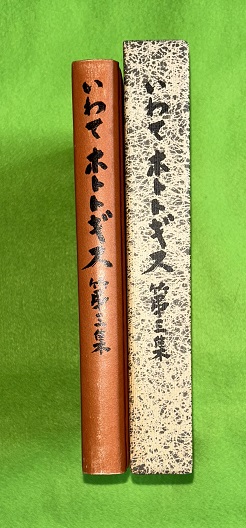 いわて ホトトギス 第三集
いわて ホトトギス 第三集